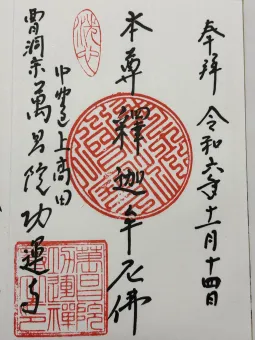 奉拝 令和六年十二月十四日
本尊 釋迦牟尼佛
中野区上高田
曹洞宗 萬昌院功運寺
萬昌院功運禪寺之印